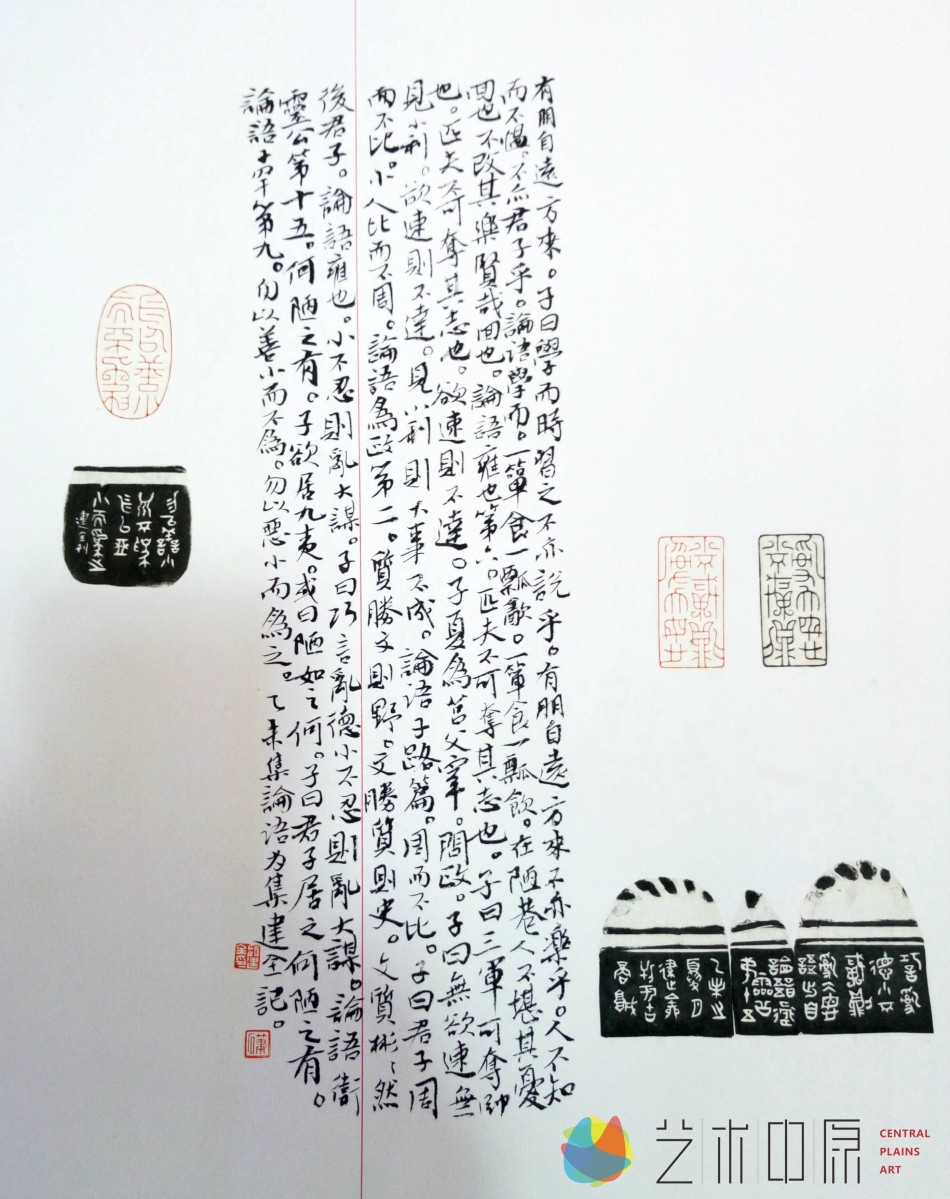 有朋自遠方來。子曰學而時習之不亦説乎。有朋自遠方來不亦樂乎。人不知
而不慍。不亦君子乎。論语學而。一簞食一瓢飲。一簞食一瓢飲。在陋巷人不堪其憂
回也不改其樂賢哉回也。論語雍也第六。匹夫不可奪其志也。子曰三軍可奪帥
也。匹夫不可奪其志也。欲速則不達。子夏為莒父宰。問政。子曰無欲速無
見小利。欲速則不達。見小利則大事不成。論语子路篇。周而不比。子曰君子周
而不比。小人比而不周。論語為政第二。質勝文則野。文勝質則史。文質彬〻然
後君子。論語雍也。小不忍則亂大謀。子曰巧言亂德小不忍則亂大謀。論語衛
靈公第十五。何陋之有。子欲居九夷。或曰陋如之何。子曰君子居之何陋之有。
論語子罕第九。勿以善小而不為。勿以惡小而為之。乙未集論语为集建全記。
艺术中原
CENTRAL
PLAINS
ART